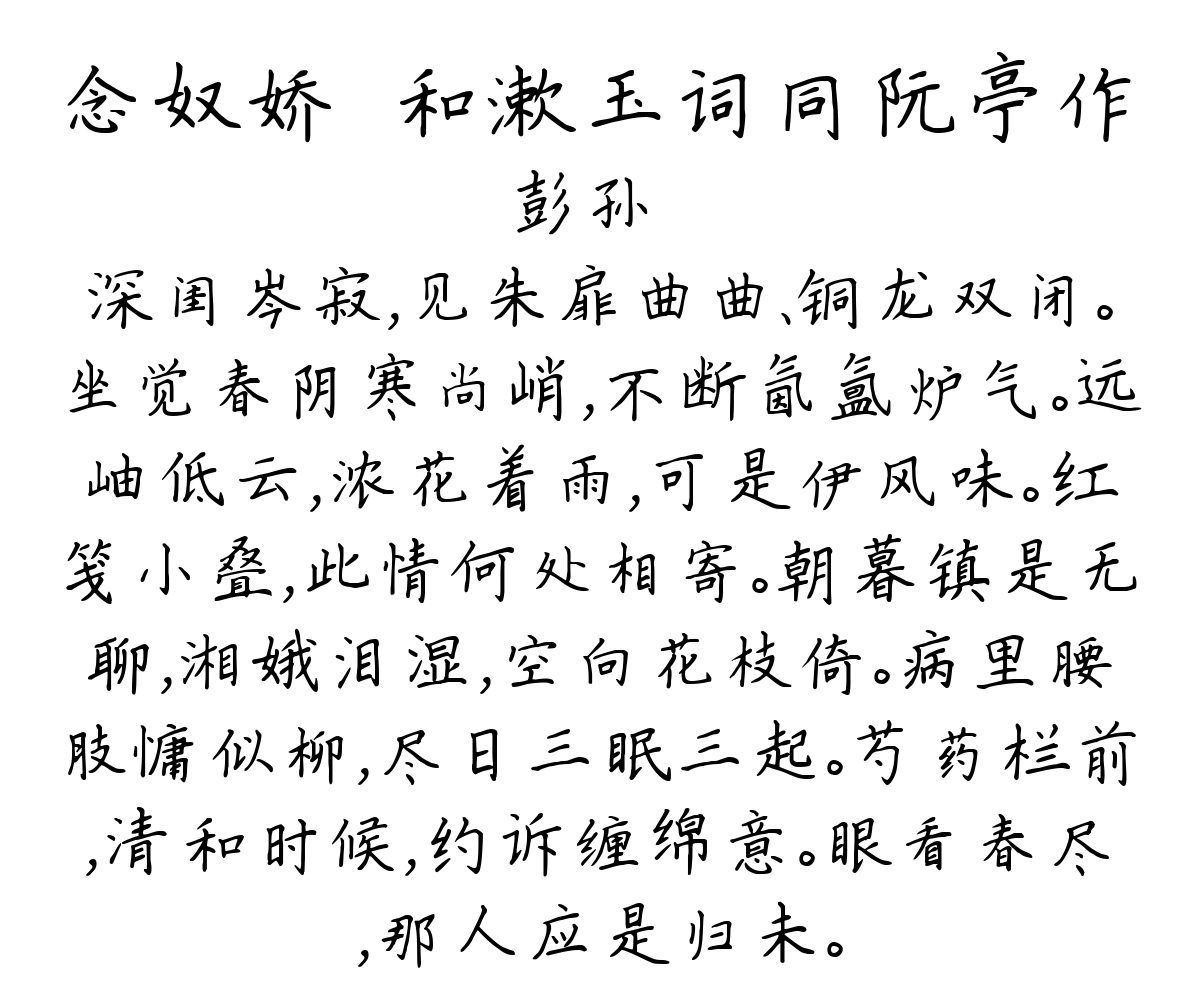 念奴娇 和漱玉词同阮亭作
彭孙
深闺岑寂,见朱扉曲曲、铜龙双闭。
坐觉春阴寒尚峭,不断氤氲炉气。远
岫低云,浓花着雨,可是伊风味。红
笺小叠,此情何处相寄。朝暮镇是无
聊,湘娥泪湿,空向花枝倚。病里腰
肢慵似柳,尽日三眠三起。芍药栏前
,清和时候,约诉缠绵意。眼看春尽
,那人应是归未。